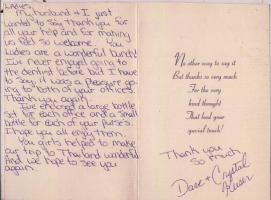 Ladies,
My husband & I just
wanted to say thank you for
all your help and for making
us feel so welcome. You
ladies are a wonderful bunch!
I've never enjoyed going to
the dentist before but I have
to say, it was a pleasure going
to both of your offices.
Thank you again.
We enclosed a large bottle
set for each office and a small
bottle for each of your purses.
I hope you all enjoy them.
You girls helped to make
our trip to Thailand wonderful
And we hope to see you
again.
No other way to say it
But thanks so very much
For the very
kind thought
That had your
special touch!
Thank you
So much
Dave & Crystal